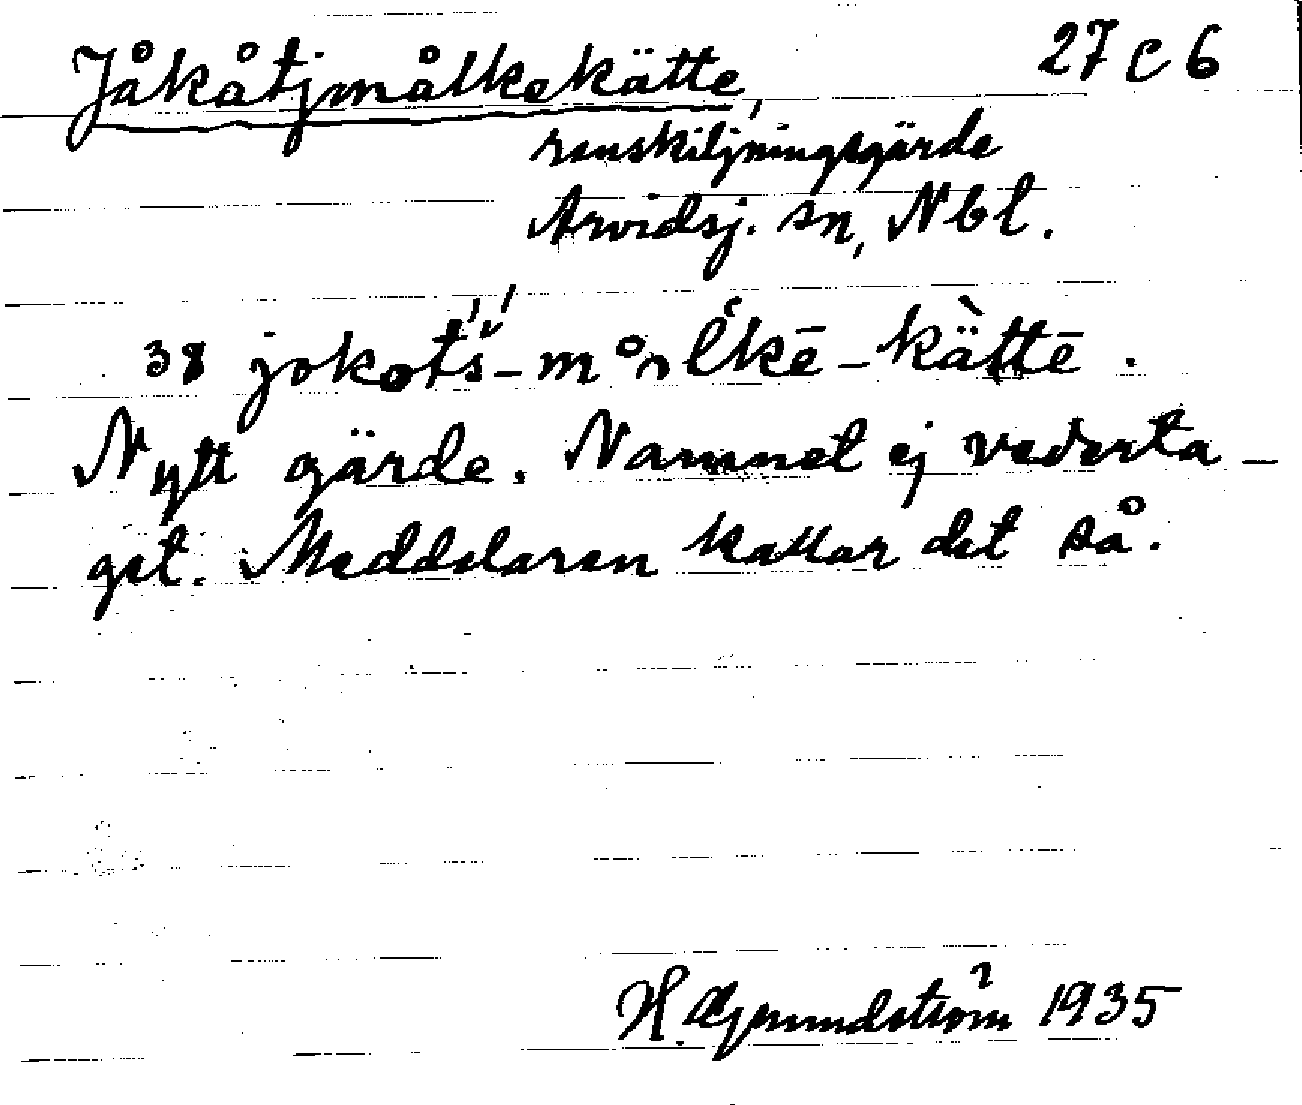 Jåkåtjmålkekätte, 27 c 6
renskiljningsgärde
Arvidsj. sn, Nbl.
38 jokotš-målkē-kättē.
Nytt gärde. Namnet ej vederta-
get. Meddelaren kallar det så.
H. Grundström 1935